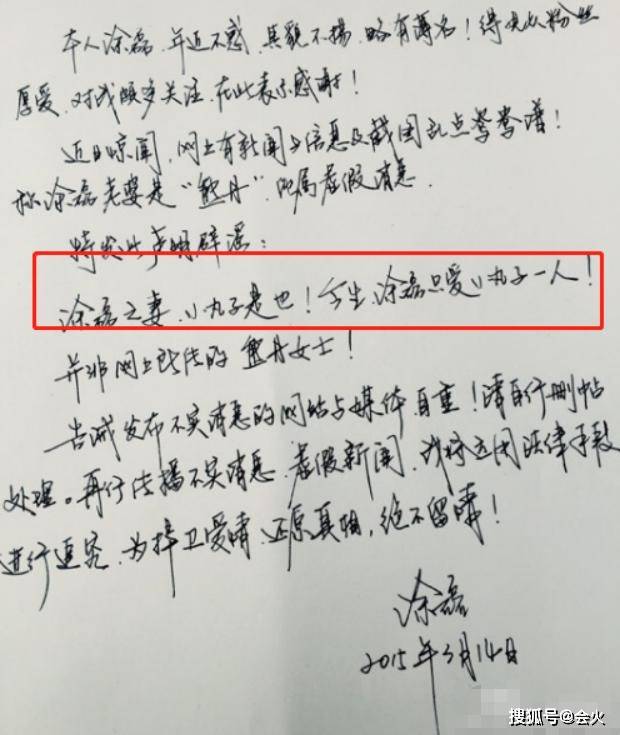 本人涂磊,年近不惑,其貌不扬,略有薄名!得大众粉丝
厚爱,对我颇多关注,在此表示感谢!
近日惊闻,网上有新闻与信息及截图乱点鸳鸯谱!
称涂磊老婆是“熊丹”,此属虚假消息.
特发此声明辟谣:
涂磊之妻,小丸子是也!今生,涂磊只爱小丸子一人!
并非网上所传的熊丹女士!
告诫发布不实消息的网站与媒体,自重!请自行删帖
处理。再行传播不实消息,虚假新闻,我将运用法律手段
进行追究,为捍卫爱情,还原真相,绝不留情!
涂磊
2015年3月14日
搜狐号@会火